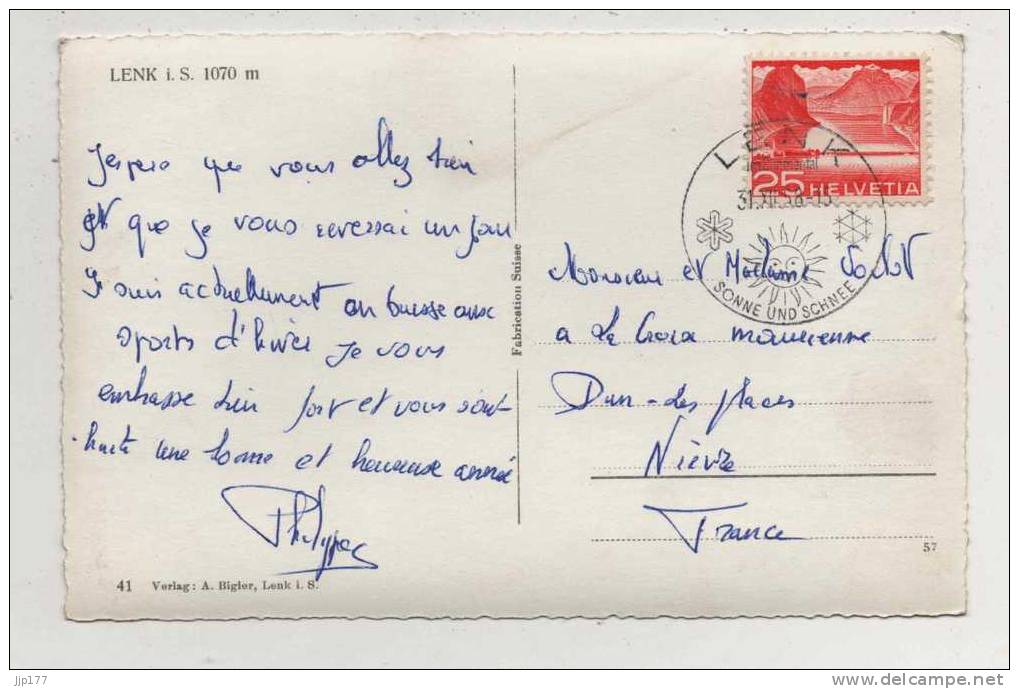 LENK i. S. 1070 m
J'espere que vous allez bien
et que je vous reverrai un jour
Je suis actuellement en Suisse aux
sports d'hiver je vous
embrasse bien fort et vous souh-
haite une bonne et heureuse année
Philippe
41 Verlag: A. Bigler, Lenk i. S.
Fabrication Suisse
25 HELVETIA
LENK
31.XII.58-15
SONNE UND SCHNEE
Monsieur et Madame
a La Croix mouvienne
Dun-Les places
Nièvre
France
57
jjp177
delcampe.net